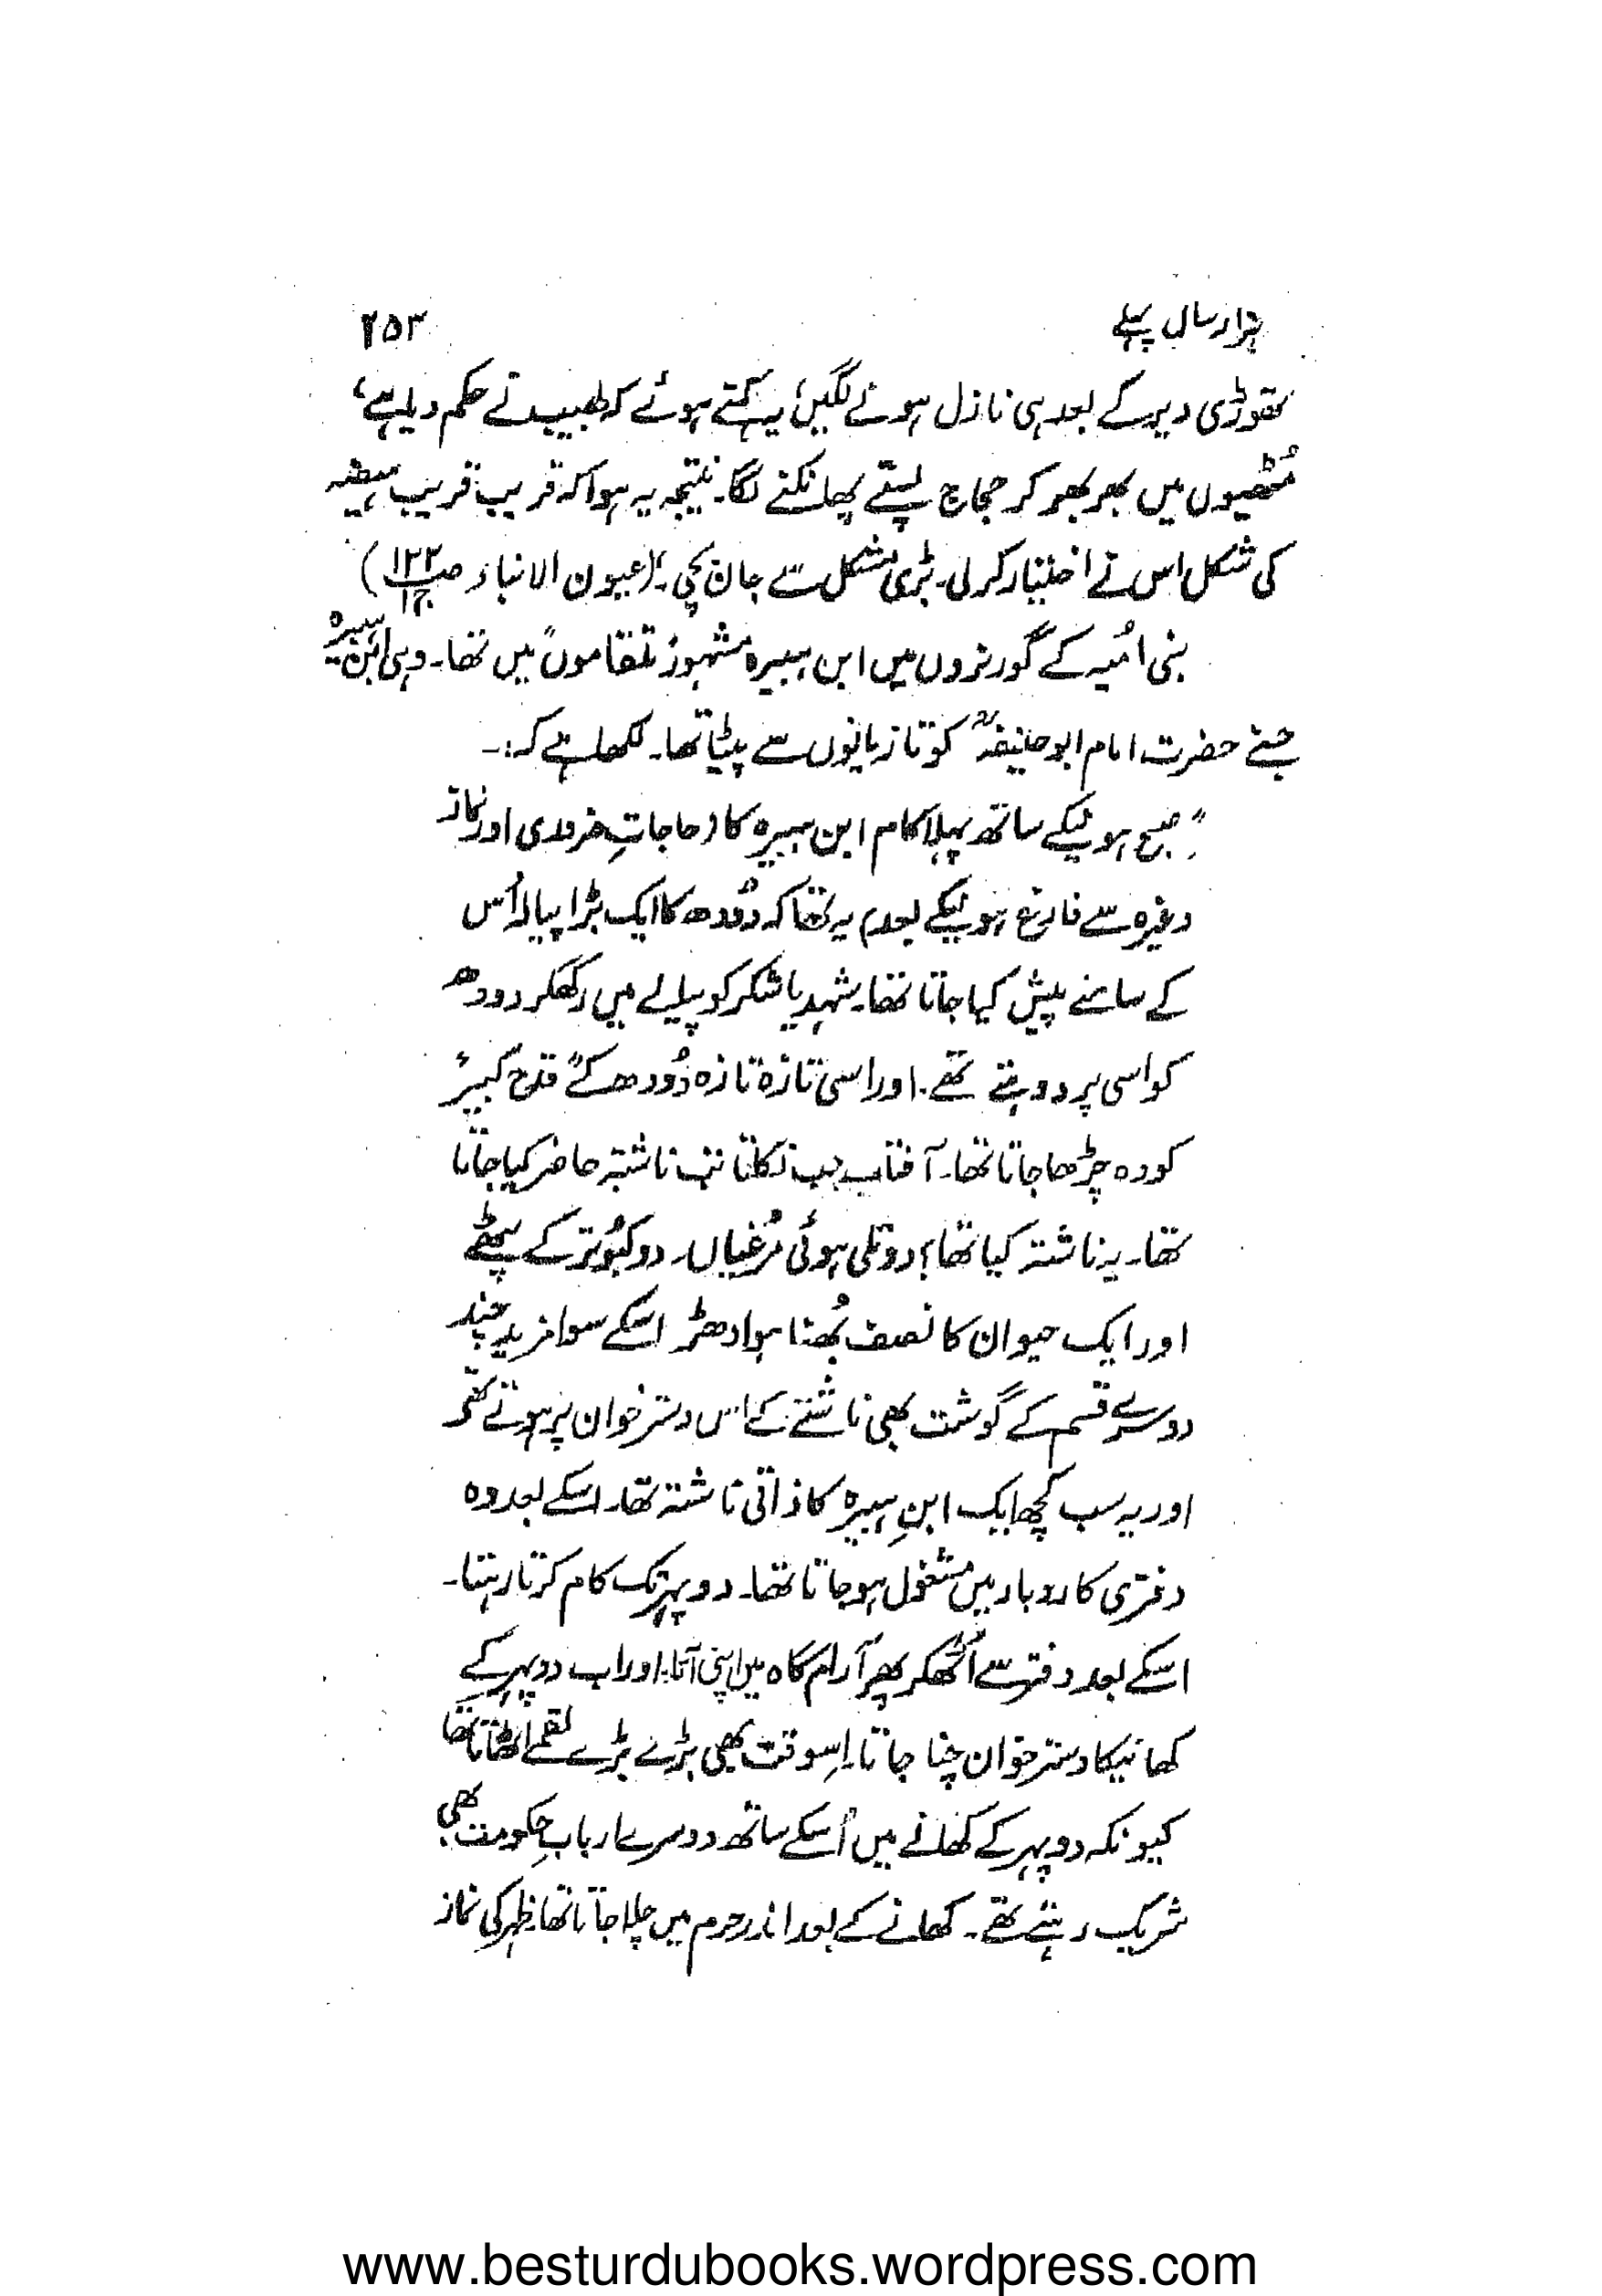 ہزار سال پہلے ۲۵۳
تھوڑی دیر کے بعد ہی نازل ہونے لگیں، یہ کہتے ہوئے کہ طبیب نے حکم دیا ہے،
مُٹھیوں میں بھر بھر کر حجاج پستے پھانکنے لگا۔ نتیجہ یہ ہوا کہ قریب قریب ہیضہ
کی شکل اس نے اختیار کر لی۔ بڑی مشکل سے جان بچی۔ (عیون الانباء صـ ۱۲۲ ج۱)
بنی اُمیہ کے گورنروں میں ابن ہبیرہ مشہور "تلقاموں" میں تھا۔ وہی ابن ہبیرہ
جسنے حضرت امام ابو حنیفہؒ کو تازیانوں سے پیٹا تھا۔ لکھا ہے کہ:۔
"صبح ہونیکے ساتھ پہلا کام ابن ہبیرہ کا (حاجاتِ ضروری اور نماز
وغیرہ سے فارغ ہونیکے بعد) یہ تھا کہ دُودھ کا ایک بڑا پیالہ اُس
کے سامنے پیش کیا جاتا تھا۔ شہد یا شکر کو پیالے میں رکھکر دودھ
کو اسی پر دوہتے تھے۔ اور اسی تازہ تازہ دُودھ کے "قدح کبیر"
کو وہ چڑھا جاتا تھا۔ آفتاب جب نکلتا تب ناشتہ حاضر کیا جاتا
تھا۔ یہ ناشتہ کیا تھا؟ دو تلی ہوئی مُرغیاں۔ دو کبُوتر کے پٹھے
اور ایک حیوان کا نصف بُھنا ہوا دھڑ اسکے سوا مزید چند
دوسرے قسم کے گوشت بھی ناشتے کے اس دسترخوان پر ہوتے تھے
اور یہ سب کچھ ایک ابنِ ہبیرہ کا ذاتی ناشتہ تھا۔ اسکے بعد وہ
دفتری کاروبار میں مشغول ہو جاتا تھا۔ دوپہر تک کام کرتا رہتا۔
اسکے بعد دفتر سے اُٹھکر پھر آرام گاہ میں اپنی آتا۔ اور اب دوپہر کے
کھانیکا دسترخوان چنا جاتا۔ اِسوقت بھی بڑے بڑے لقمے اُٹھاتا تھا
کیونکہ دوپہر کے کھانے میں اُسکے ساتھ دوسرے اربابِ حکومت بھی
شریک رہتے تھے۔ کھانے کے بعد اندر حرم میں چلا جاتا تھا۔ ظہر کی نماز
www.besturdubooks.wordpress.com